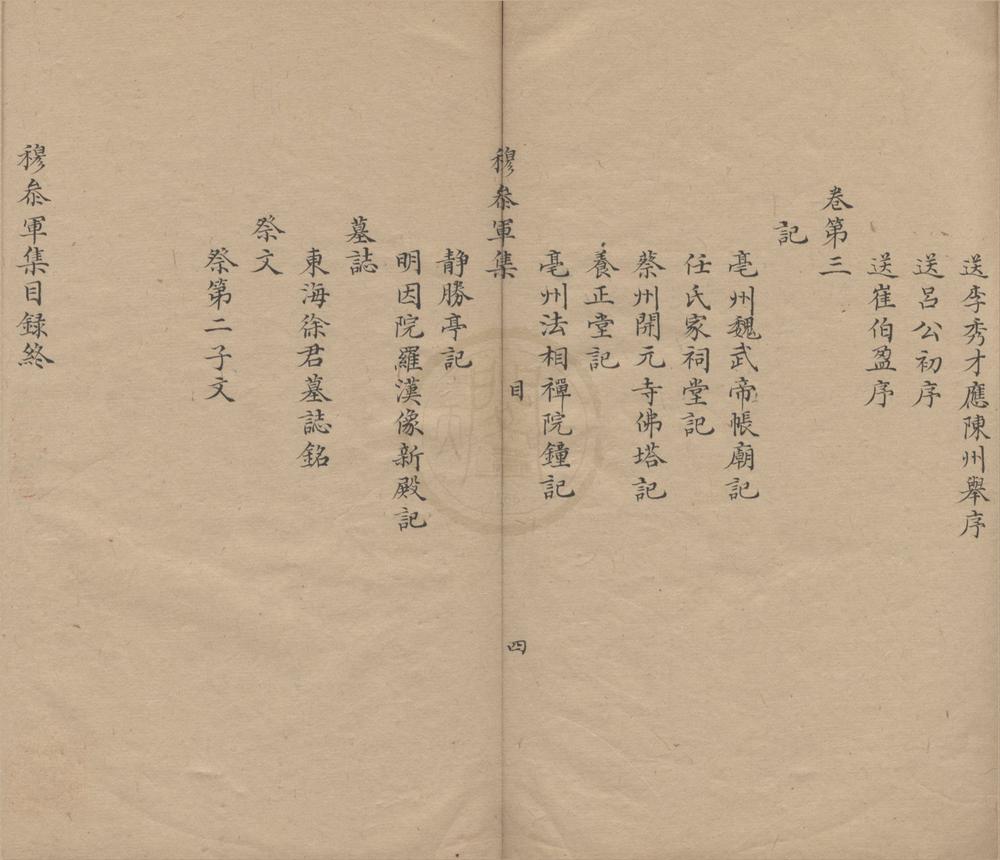 送李秀才應陳州舉序
送呂公初序
送崔伯盈序
卷第三
記
亳州魏武帝帳廟記
任氏家祠堂記
蔡州開元寺佛塔記
養正堂記
亳州法相禪院鐘記
穆叅軍集 目 四
静勝亭記
明因院羅漢像新殿記
墓誌
東海徐君墓誌銘
祭文
祭第二子文
穆叅軍集目録終